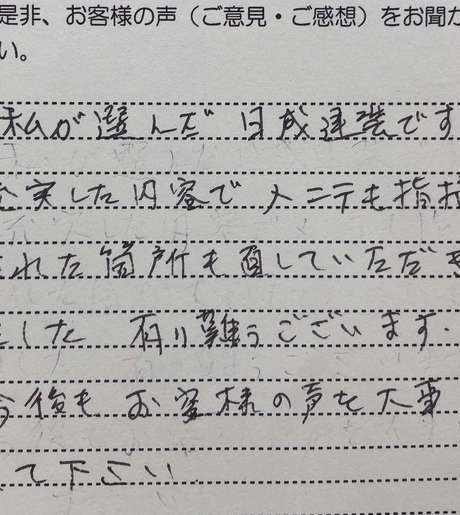 是非、お客様の声（ご意見・ご感想）をお聞か
い。
私が選んだ 日成建設です
充実した内容で メンテも指摘
された箇所も直していただき
ました 有り難うございます.
今後も お客様の声を大事
して下さい